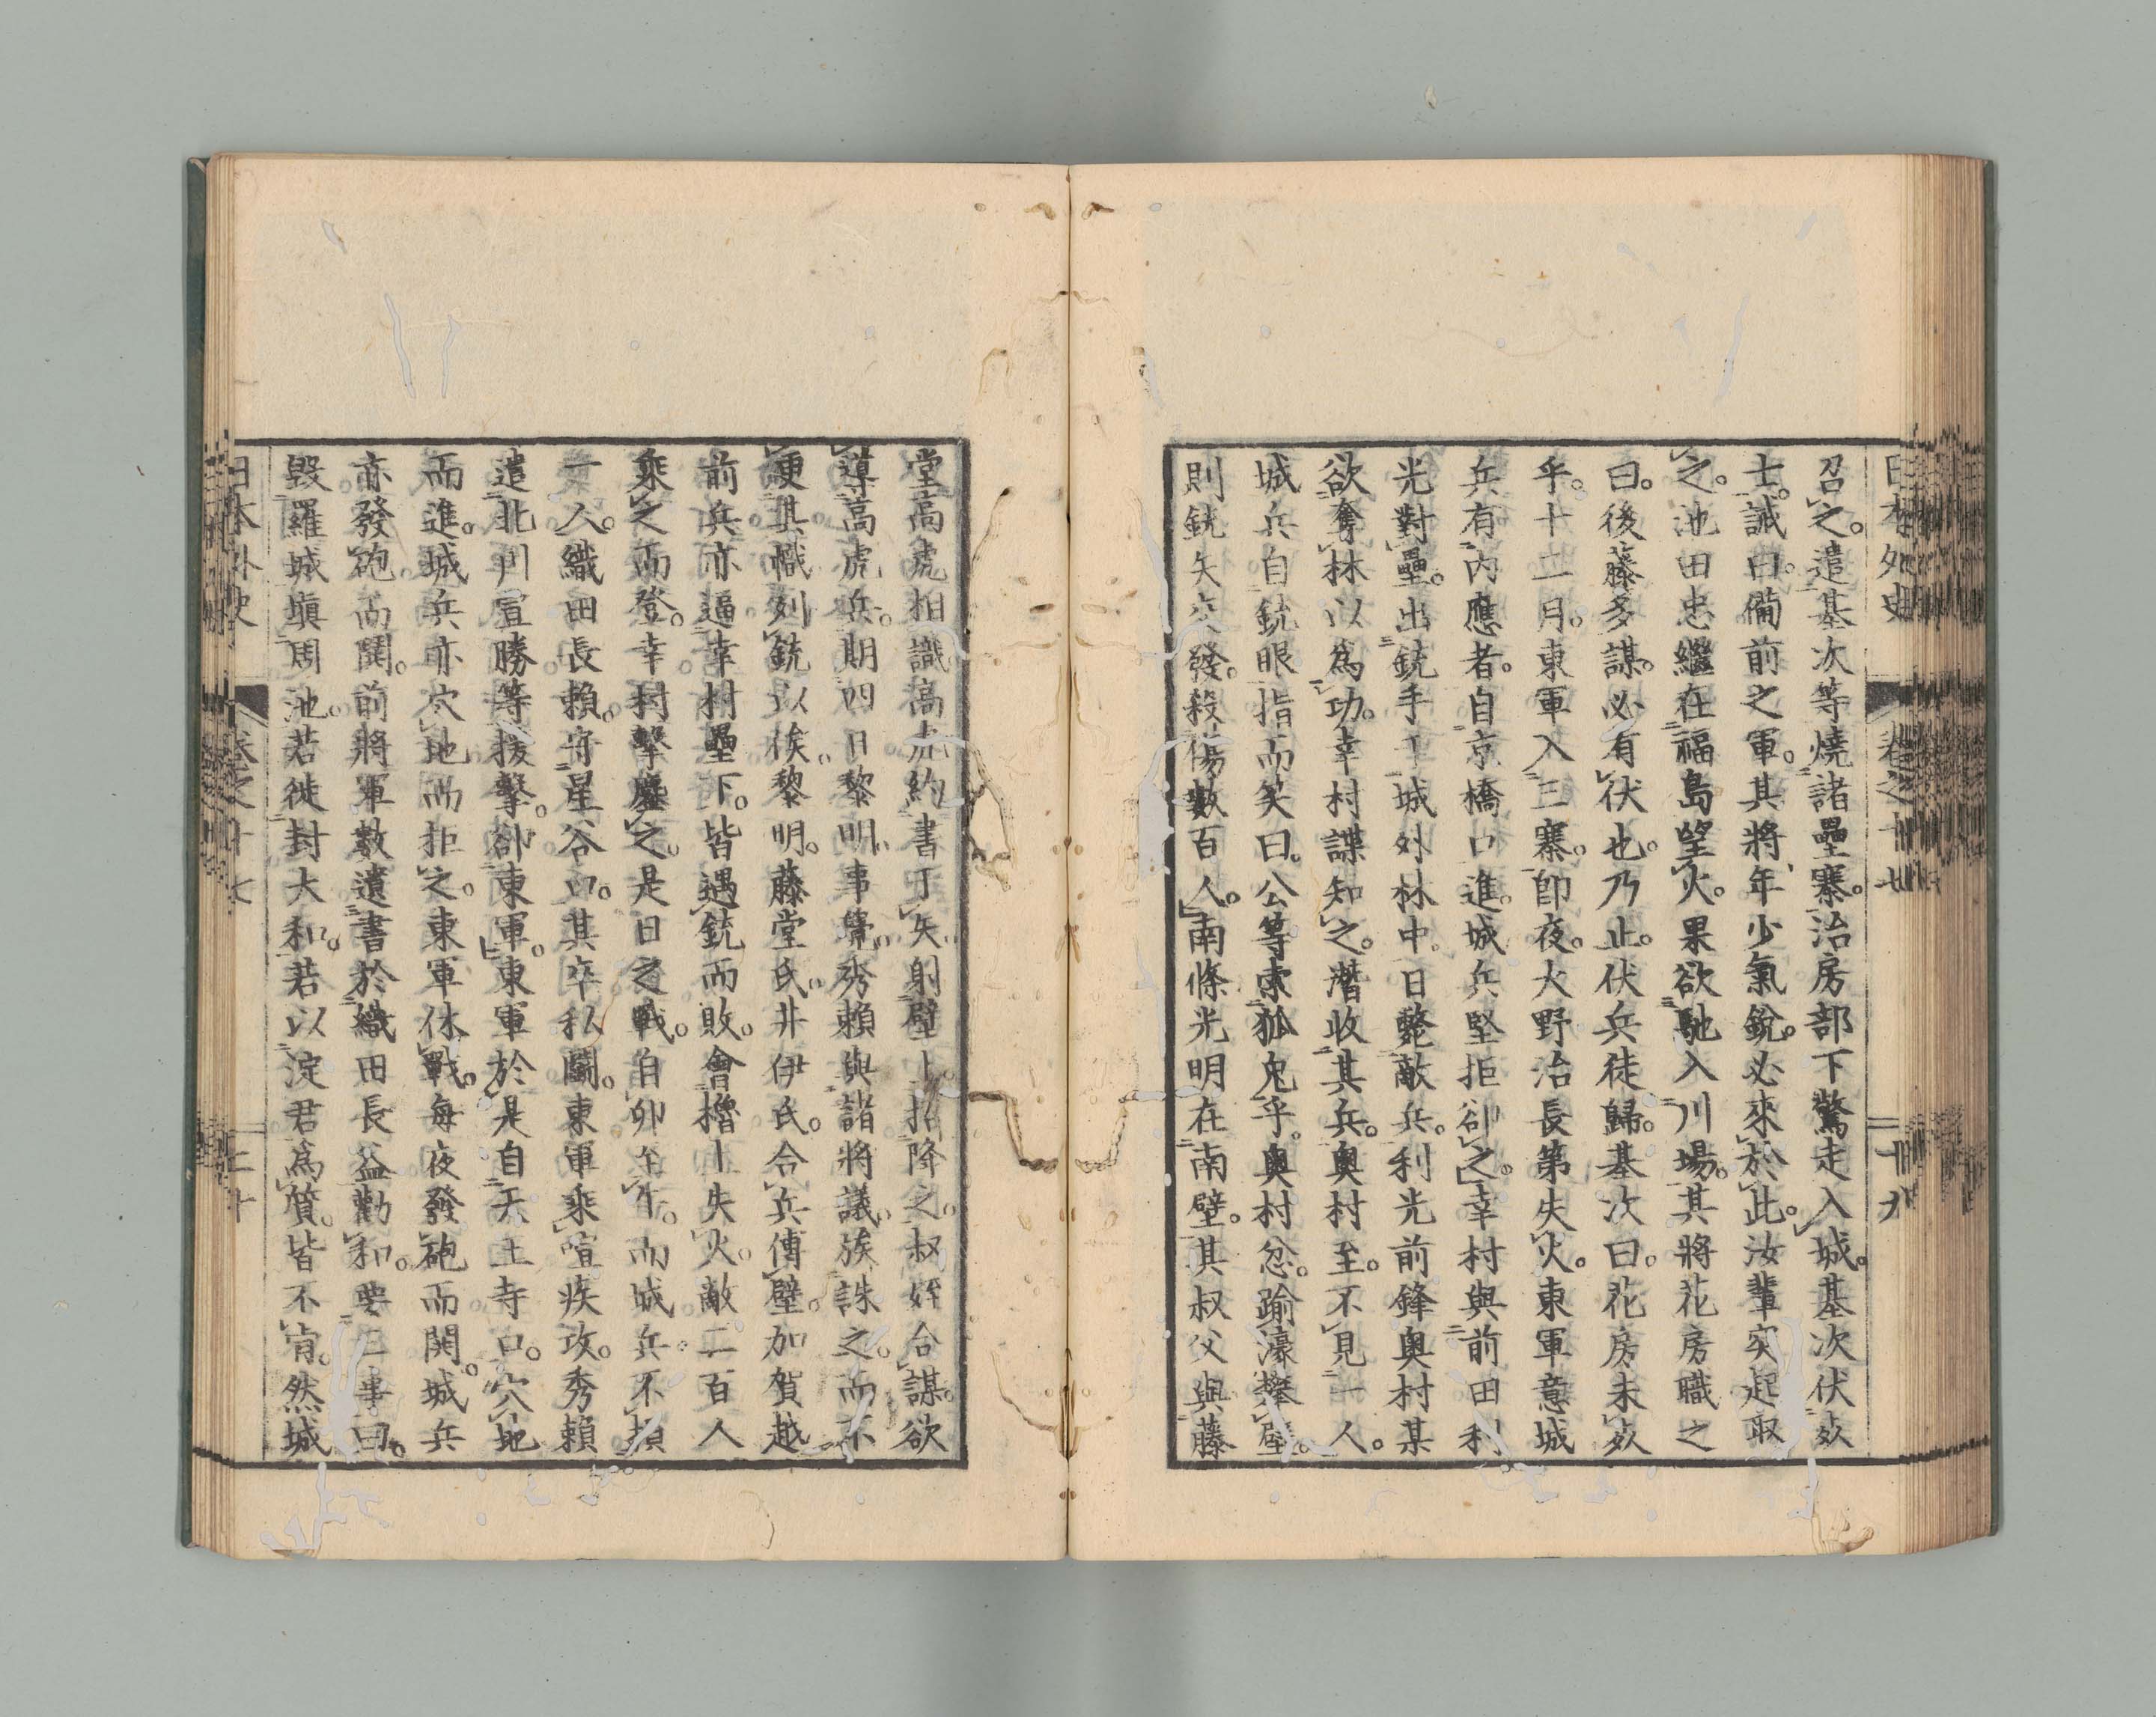 日本外史 卷之十七 十九
召之。遣基次等燒諸壘寨。治房部下驚走入城。基次伏死
士。誡曰。備前之軍。其將年少氣銳。必來於此。汝輩突起取
之。池田忠繼在福島望火。果欲馳入川場。其將花房職之
曰。後藤多謀。必有伏也。乃止。伏兵徒歸。基次曰。花房未死
乎。十一月。東軍入三寨。卽夜。大野治長第失火。東軍意城
兵有內應者。自京橋口進。城兵堅拒卻之。幸村與前田利
光對壘。出銃手于城外林中。日斃敵兵。利光前鋒奧村某
欲奪林以爲功。幸村諜知之。潛收其兵。奧村至。不見一人。
城兵自銃眼指而笑曰。公等索狐兔乎。奧村忿。踰濠攀壁。
則銃矢交發。殺傷數百人。南條光明在南壁。其叔父與藤
堂高虎相識。高虎約書于矢。射壁上招降之。叔姪合謀。欲
導高虎兵。期四日黎明。事覺。秀賴與諸將議。族誅之。而不
更其幟。列銃以俟。黎明。藤堂氏。井伊氏。合兵傳壁。加賀越
前兵亦逼幸村壘下。皆遇銃而敗。會櫓上失火。敵二百人
乘之而登。幸村擊鏖之。是日之戰。自卯至午。而城兵不損
一人。織田長賴。守星谷口。其卒私鬭。東軍乘喧疾攻。秀賴
遣北川宣勝等援擊。卻東軍。東軍於是自天王寺口。穴地
而進。城兵亦穴地而拒之。東軍休戰。每夜發砲而鬨。城兵
亦發砲而鬨。前將軍數遺書於織田長益勸和。要三事曰。
毀羅城塡周池。若徙封大和。若以淀君爲質。皆不肯。然城
日本外史 卷之十七 二十